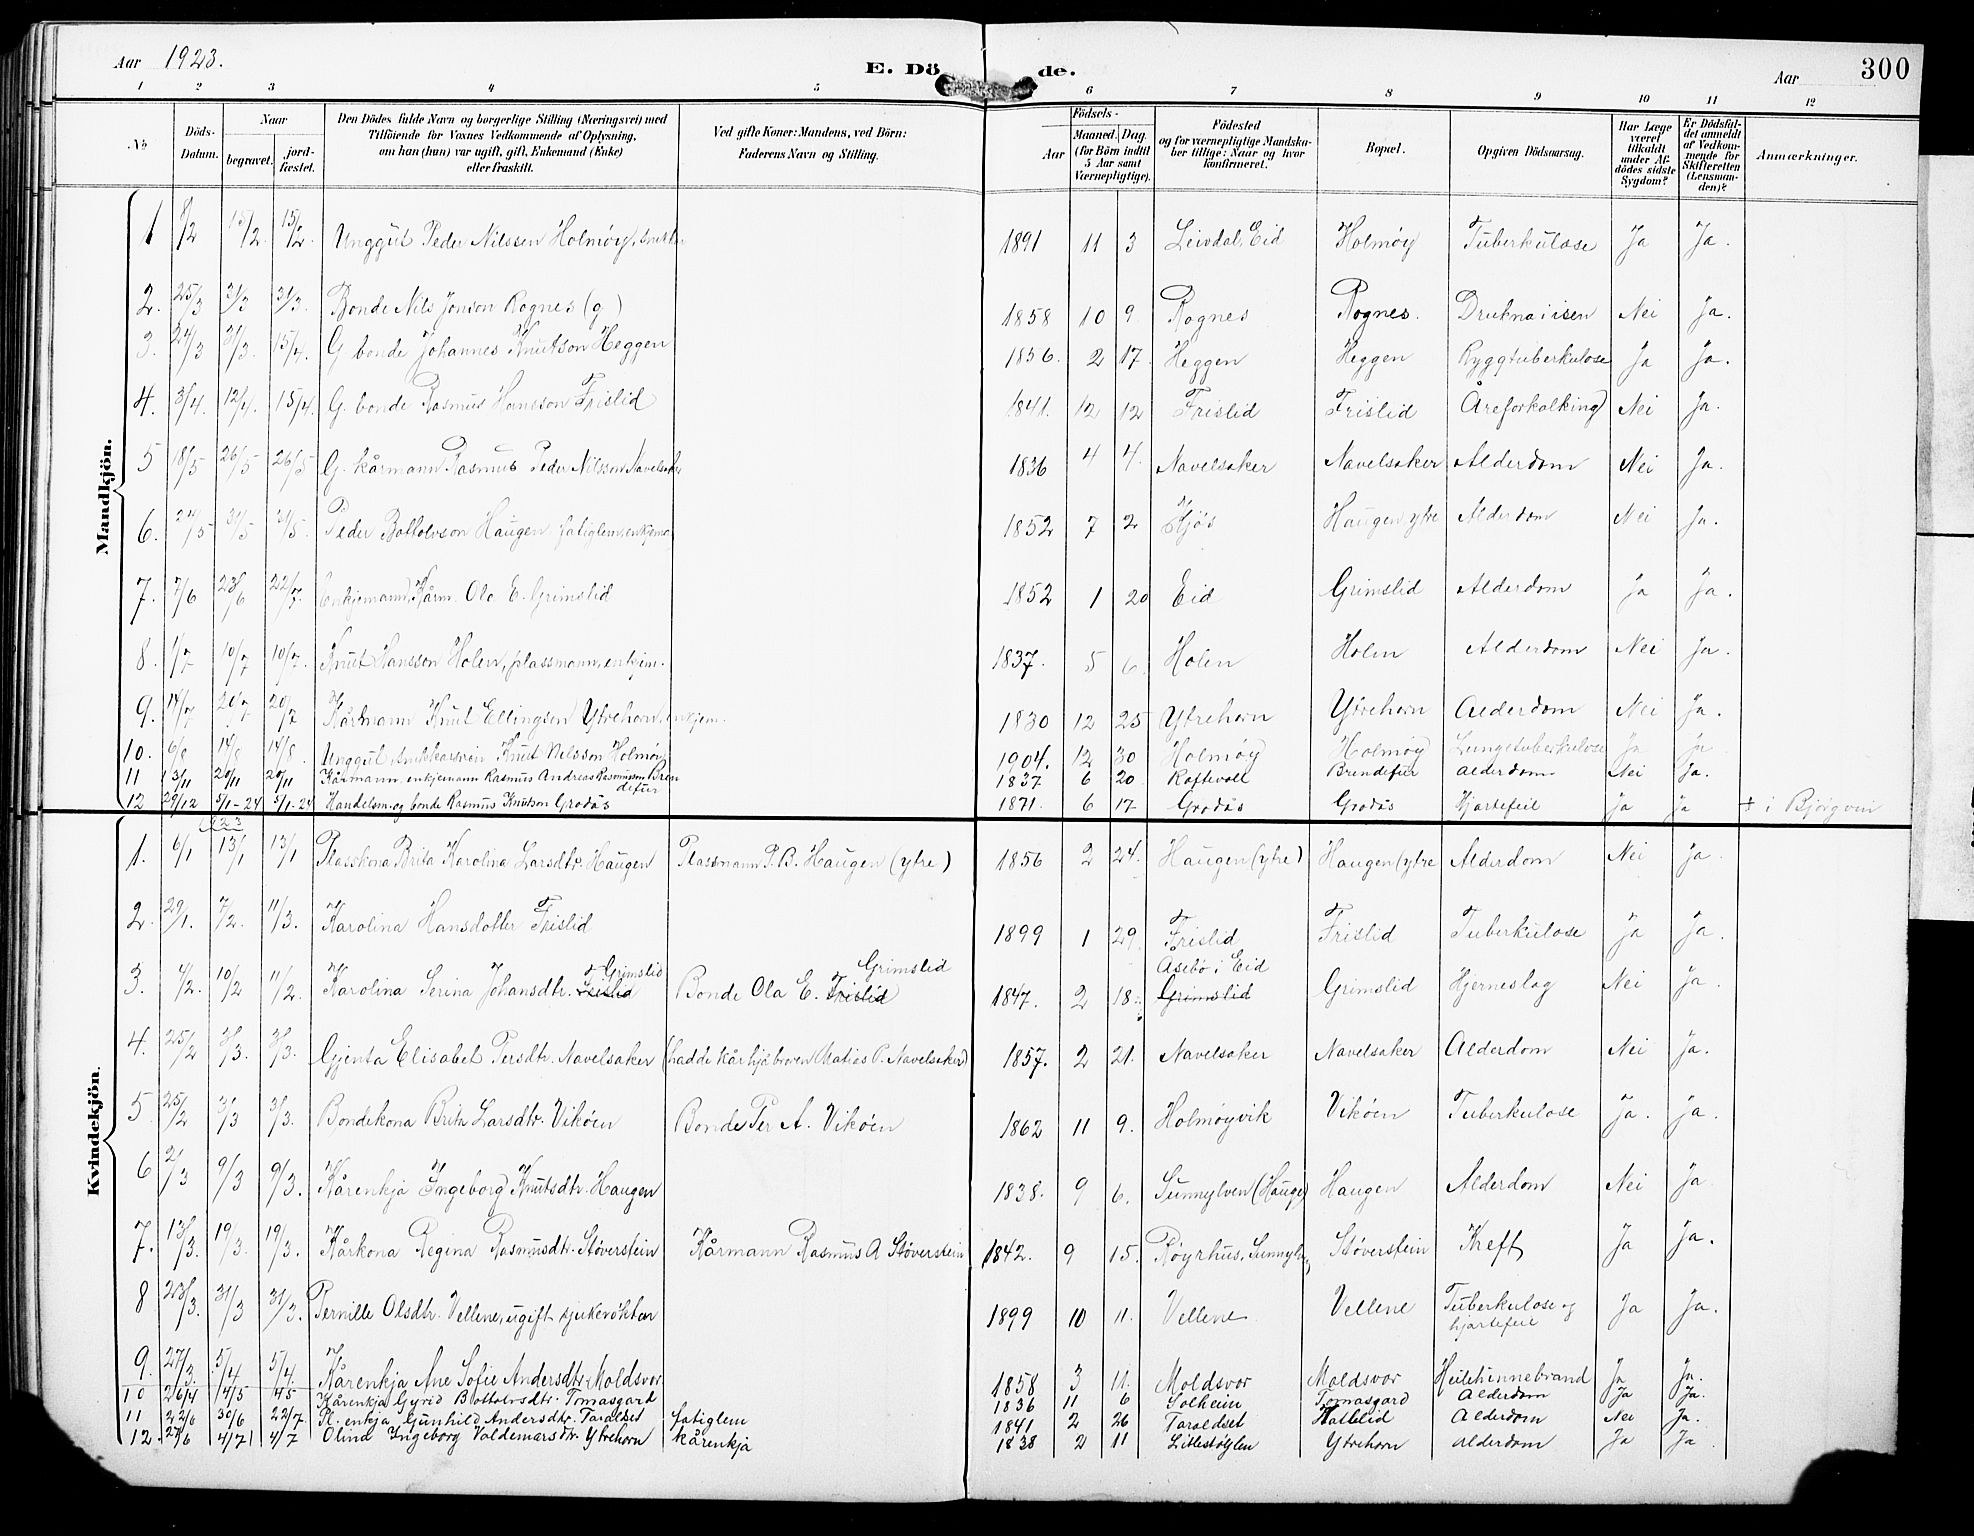 Aar 1923. E. Dö de. Aar 300
1 2 3 4 5 6 7 8 9 10 11 12
No Döds-Datum. Naar begravet. jord-fæstet. Den Dödes fulde Navn og borgerlige Stilling (Næringsvei) med Tilföiende for Voxnes Vedkommende af Oplysning, om han (hun) var ugift, gift, Enkemand (Enke) eller fraskilt. Ved gifte Koner: Mandens, ved Börn: Faderens Navn og Stilling. Födsels- Aar Maaned. Dag. (for Börn indtil 5 Aar samt Værnepligtige). Födested og for værnepligtige Mandskaber tillige: Naar og hvor konfirmeret. Bopæl. Opgiven Dödsaarsag. Har Læge været tilkaldt under Afdödes sidste Sygdom? Er Dödsfaldet anmeldt af Vedkommende for Skifteretten (Lensmanden)? Anmærkninger.
Mandkjön.
1 8/2 15/2. 15/2. Unggut Peder Nilssen Holmöy, 1891 11 3 Leivdal, Eid Holmöy Tuberkulose Ja Ja.
2. 25/3 31/3 31/3. Bonde Nils Jonson Rognes (g) 1858 10 9 Rognes Rognes. Drukna i isen Nei Ja.
3. 24/3 31/3. 15/4. G bonde Johannes Knutson Heggen 1856. 2 17. Heggen Heggen Ryggtuberkulose Ja Ja.
4. 3/4. 12/4. 15/4. G. bonde Rasmus Hansson Frislid 1841. 12 12 Frislid Frislid Åreforkalking Nei Ja.
5 18/5 26/5 26/5 G. kårmann Rasmus Peder Nilsson Navelsaker 1836 4 4. Navelsaker Navelsaker Alderdom Nei Ja.
6. 24/5 31/5 31/5. Peder Bottolvson Haugen fatiglem, enkjema 1852 7 2 Hjös Haugen ytre Alderdom Nei Ja.
7. 7/6 23/6 22/7. Enkjemann, Kårm. Ola E. Grimslid 1852 1 20 Eid Grimslid Alderdom Ja Ja.
8. 1/7 10/7 10/7. Knut Hansson Holen, plassmann, enkjem. 1837. 5 6 Holen Holen Alderdom Nei Ja.
9. 14/7 20/7 20/7 Kårmann Knut Ellingsen Ytrehorn, enkjem. 1830 12 25 Ytrehorn Ytrehorn Alderdom Nei Ja.
10. 6/8 14/8 14/8. Unggut, Knut Nilsson Holmöy 1904. 12 30 Holmöy Holmöy Lungetuberkulose Ja ja
11 13/11 20/11 20/11 Kårmann, enkjemann Rasmus Andreas Rasmusson Brendefur 1837 6 20 Raftevoll Brendefur alderdom Nei Ja.
12 29/12 5/1-24 5/1-24 Handelsm. og bonde Rasmus Knutson Grodås 1871. 6 17 Grodås Grodås Hjartefeil ja ja ‡ i Bjørgvin
Kvindekjön.
1923
1. 6/1 13/1 13/1 Plasskona Brita Karolina Larsdtr. Haugen Plassmann P. B. Haugen (ytre) 1856 2 24. Haugen (ytre) Haugen (ytre Alderdom Nei Ja
2. 29/1. 7/2. 11/3. Karolina Hansdotter Frislid 1899 1 29. Frislid Frislid Tuberkulose Ja Ja.
3. 4/2. 10/2 11/2. Karolina Serina Johansdtr. Frislid Grimslid Bonde Ola E. Frislid Grimslid 1847. 2 18. Grimslid Åsebö i Eid Grimslid Hjerneslag Nei Ja.
4. 25/2 3/3. 3/3. Gjenta Elisabet Persdtr. Navelsaker (hadde kår hjå broren Matias P. Navelsaker) 1857. 2 21. Navelsaker Navelsaker Alderdom Nei Ja.
5 25/2 3/3 3/3. Bondekona Brita Larsdtr. Viköen Bonde Per A. Viköen 1862 11 9. Holmöyvik Viköen Tuberkulose Ja. Ja.
6 2/3 9/3 9/3. Kårenkja Ingeborg Knutsdtr. Haugen 1838. 9 6. Sunnylven (Hauge) Haugen Alderdom Nei Ja.
7. 13/3. 19/3. 19/3. Kårkona Regina Rasmusdtr. Stöverstein Kårmann Rasmus A Stöverstein 1842. 9 15. Röyrhus, Sunnylven Stöverstein Kreft Ja Ja.
8 23/3. 31/3 31/3. Pernille Olsdtr. Vellene, ugift sjukerøktar 1899 10 11. Vellene. Vellene Tuberkulose og hjartefeil Ja Ja.
9. 27/3. 5/4 5/4. Kårenkja Ane Sofie Andersdtr. Moldsvor 1858 3 11. Moldsvor Moldsvor Heilehinnebrand Ja Ja.
10 26/4 4/5 4/5 Kårenkja Gyrid Bottolvsdtr. Tomasgard 1836 11 6 Solheim Tomasgard Alderdom Ja Ja.
11 22/6 30/6 22/7. Pl. enkja Gunhild Andersdtr. Taraldset fatiglem 1841 2 26 Taraldset Alderdom Nei Ja.
12. 27/6 4/7 4/7 Olina Ingeborg Valdemarsdtr. Ytrehorn kårenkja 1838 2 11 Litlestöylen Ytrehorn alderdom Ja Ja